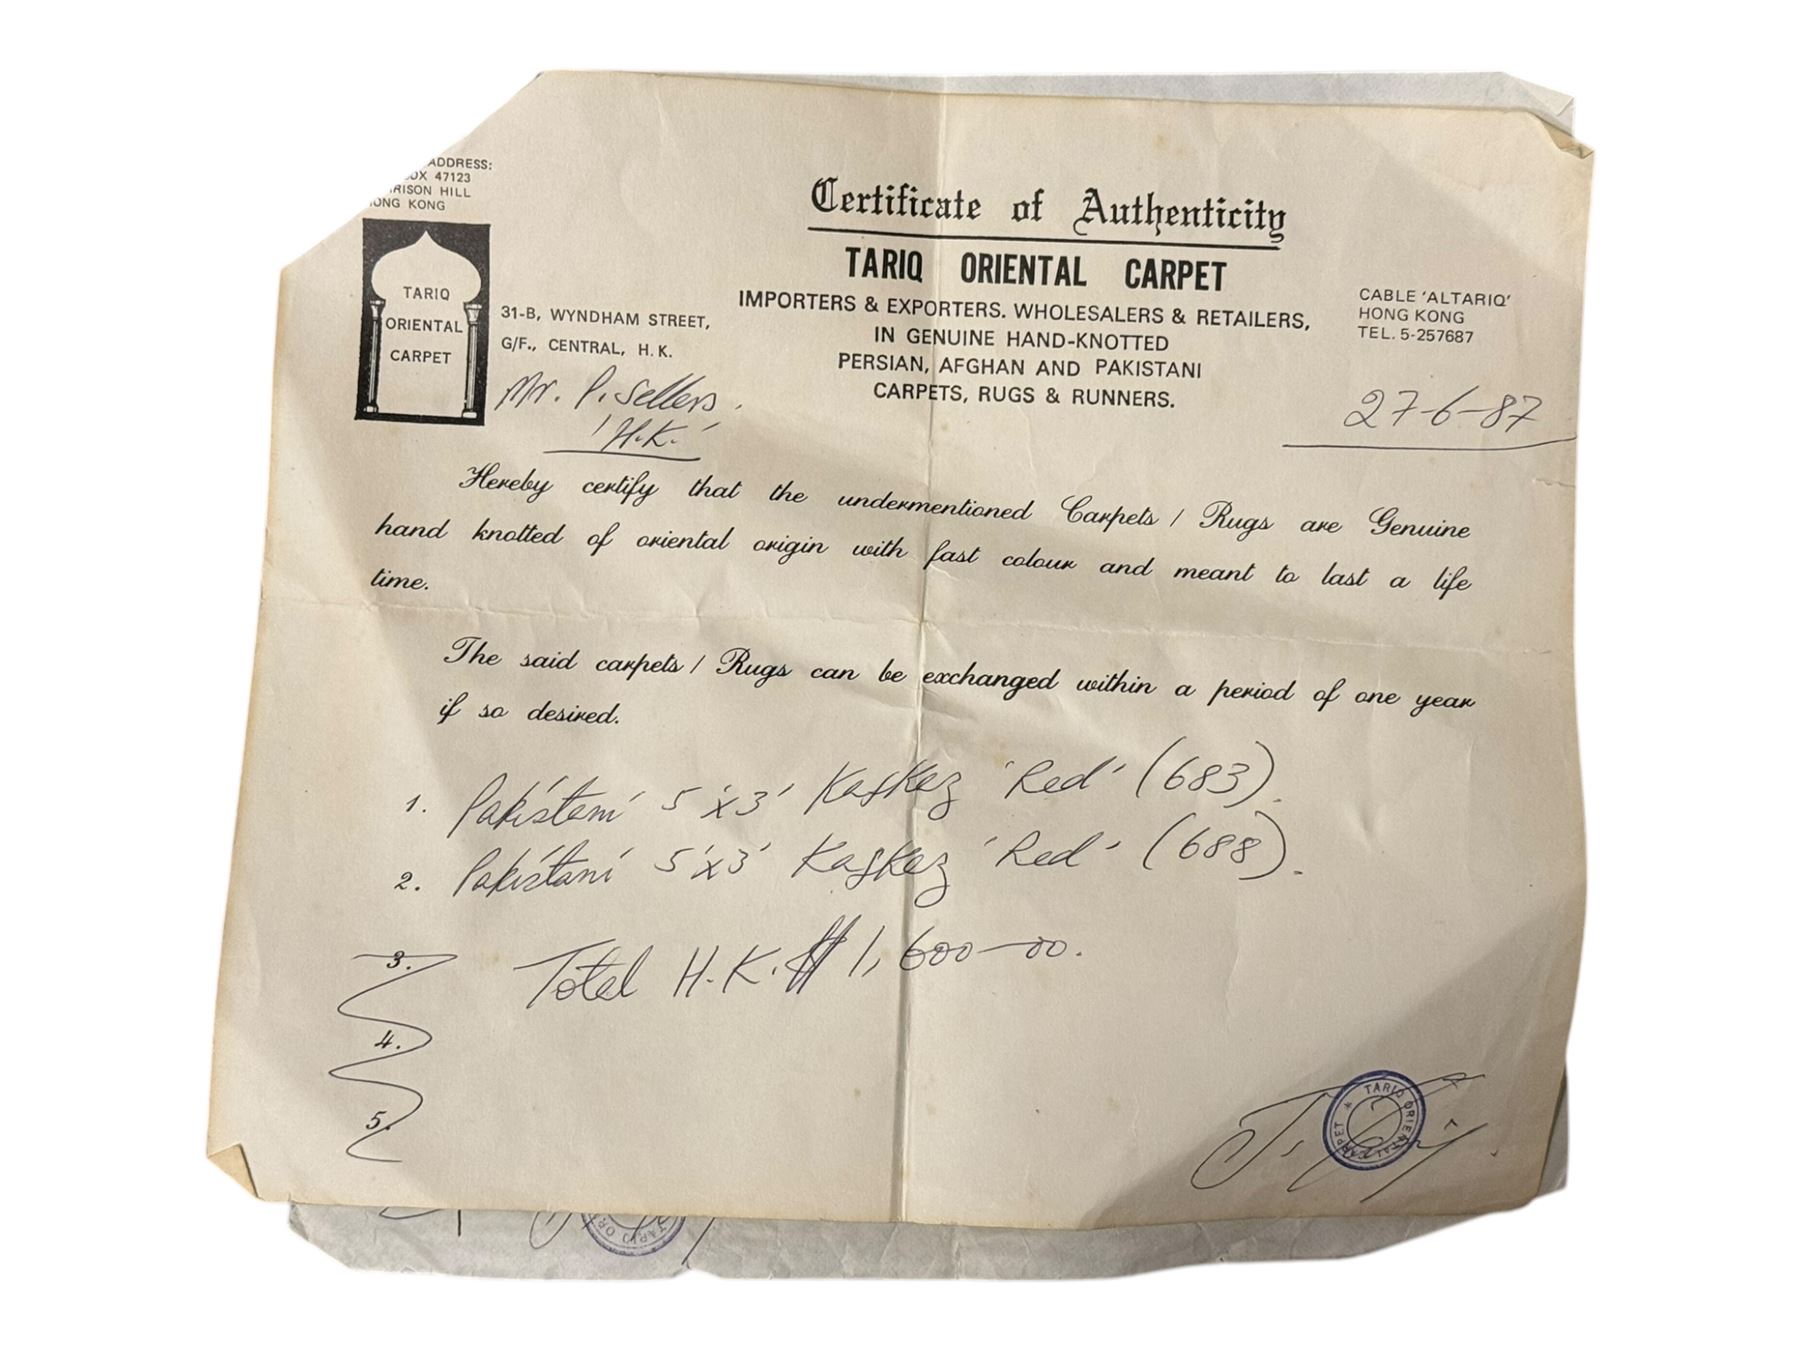 ADDRESS:
OX 47123
RISON HILL
ONG KONG
Certificate of Authenticity
TARIQ ORIENTAL CARPET
IMPORTERS & EXPORTERS. WHOLESALERS & RETAILERS,
IN GENUINE HAND-KNOTTED
PERSIAN, AFGHAN AND PAKISTANI
CARPETS, RUGS & RUNNERS.
TARIQ
ORIENTAL
CARPET
31-B, WYNDHAM STREET,
G/F., CENTRAL, H. K.
CABLE 'ALTARIQ'
HONG KONG
TEL. 5-257687
Mr. P. Sellers.
'H.K.'
27-6-87
Hereby certify that the undermentioned Carpets / Rugs are Genuine
hand knotted of oriental origin with fast colour and meant to last a life
time.
The said carpets / Rugs can be exchanged within a period of one year
if so desired.
1. Pakistani 5'x3' Kafkaz 'Red' (683).
2. Pakistani 5'x3' Kafkaz 'Red' (688).
3. Total H.K.$ 1,600-00.
4.
5.
TARIQ ORIENTAL CARPET
TARIQ OR